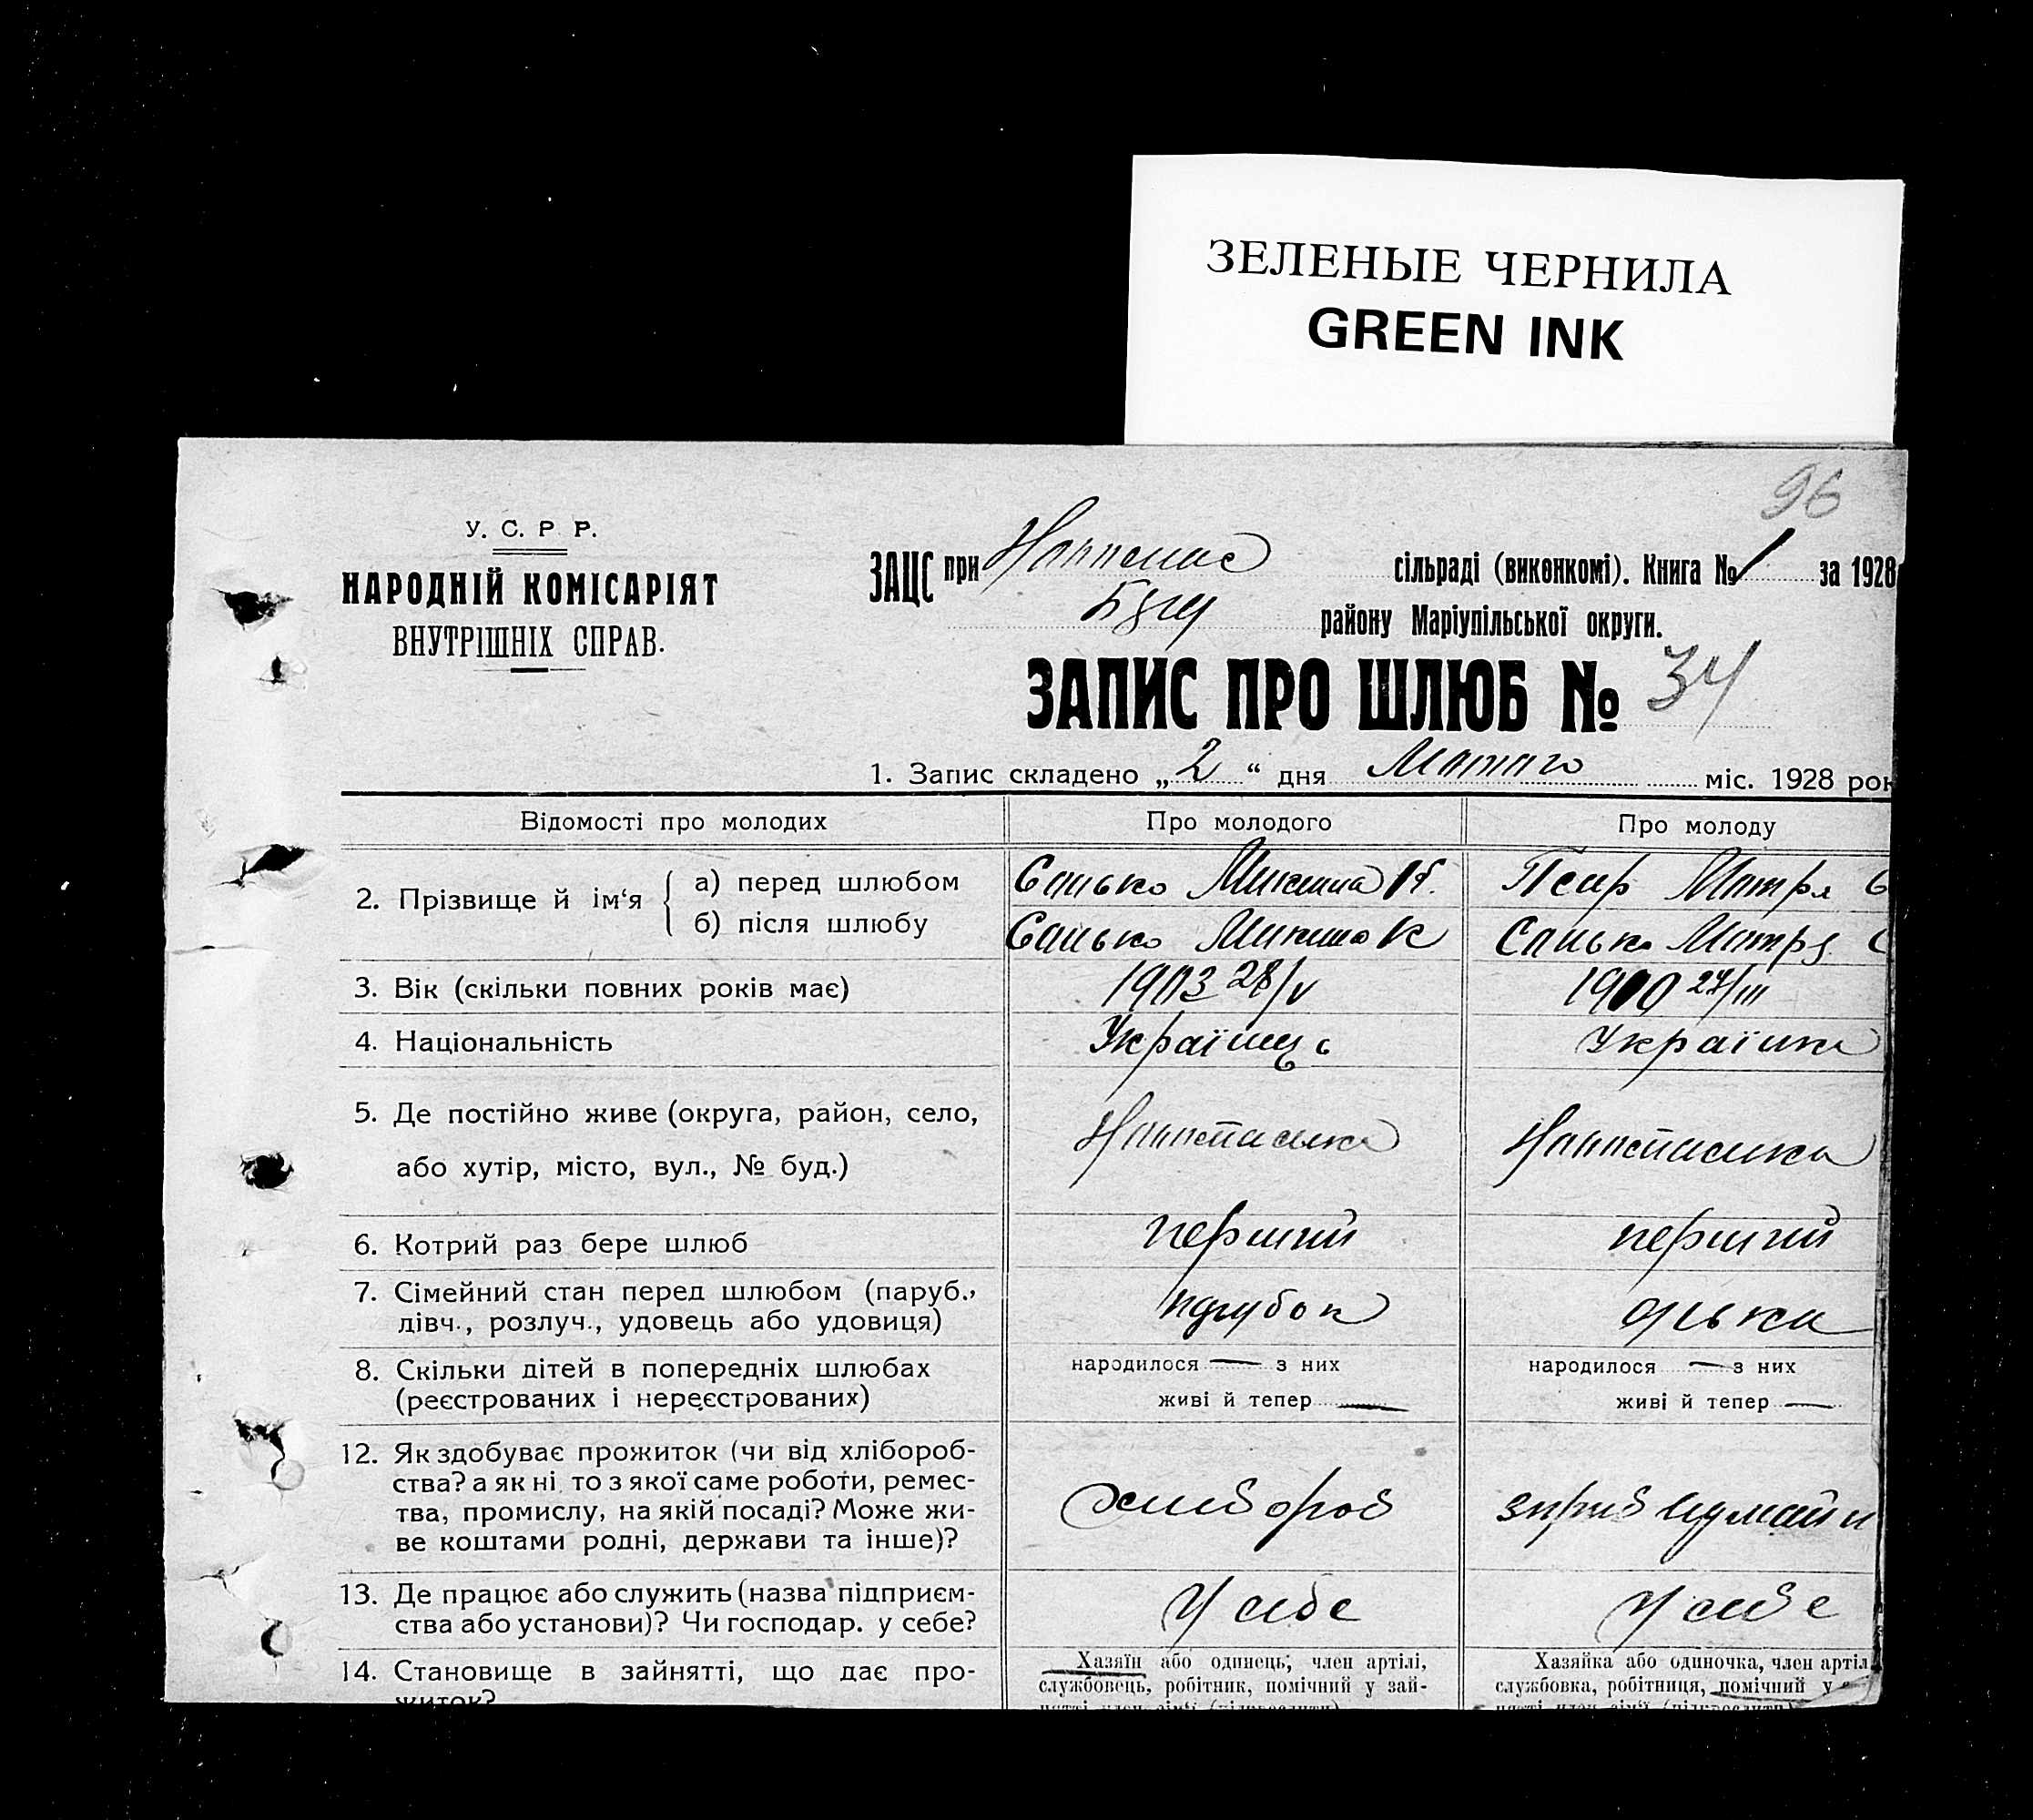 ЗЕЛЕНЫЕ ЧЕРНИЛА
GREEN INK
96
У. С. Р. Р.
НАРОДНІЙ КОМІСАРІЯТ
ВНУТРІШНІХ СПРАВ.
ЗАЦС при сільраді (виконкомі). Книга № 1 за 1928
району Маріупільської округи.
ЗАПИС ПРО ШЛЮБ № 34
1. Запис складено „2“ дня міс. 1928 рок
Відомості про молодих Про молодого Про молоду
2. Прізвище й ім'я { а) перед шлюбом Санько Микита К. Матря С
б) після шлюбу Санько Микита К Санько Матря С
3. Вік (скільки повних років має) 1903 28/V 1900 27/III
4. Національність Українць Українка
5. Де постійно живе (округа, район, село,
або хутір, місто, вул., № буд.)
6. Котрий раз бере шлюб перший перший
7. Сімейний стан перед шлюбом (паруб.,
дівч., розлуч., удовець або удовиця) парубок
8. Скільки дітей в попередніх шлюбах народилося — з них народилося — з них
(реєстрованих і нереєстрованих) живі й тепер — живі й тепер —
12. Як здобуває прожиток (чи від хлібороб-
ства? а як ні, то з якої саме роботи, ремес-
тва, промислу, на якій посаді? Може жи-
ве коштами родні, держави та інше)?
хлибороб
13. Де працює або служить (назва підприєм-
ства або установи)? Чи господар. у себе?
У себе У себе
14. Становище в зайнятті, що дає про-
житок?
Хазяїн або одинець, член артілі,
службовець, робітник, помічний у зай-
нятті член сім'ї (підкреслити)
Хазяйка або одиночка, член артіл
службовка, робітниця, помічний у
нятті член сім'ї (підкреслити)